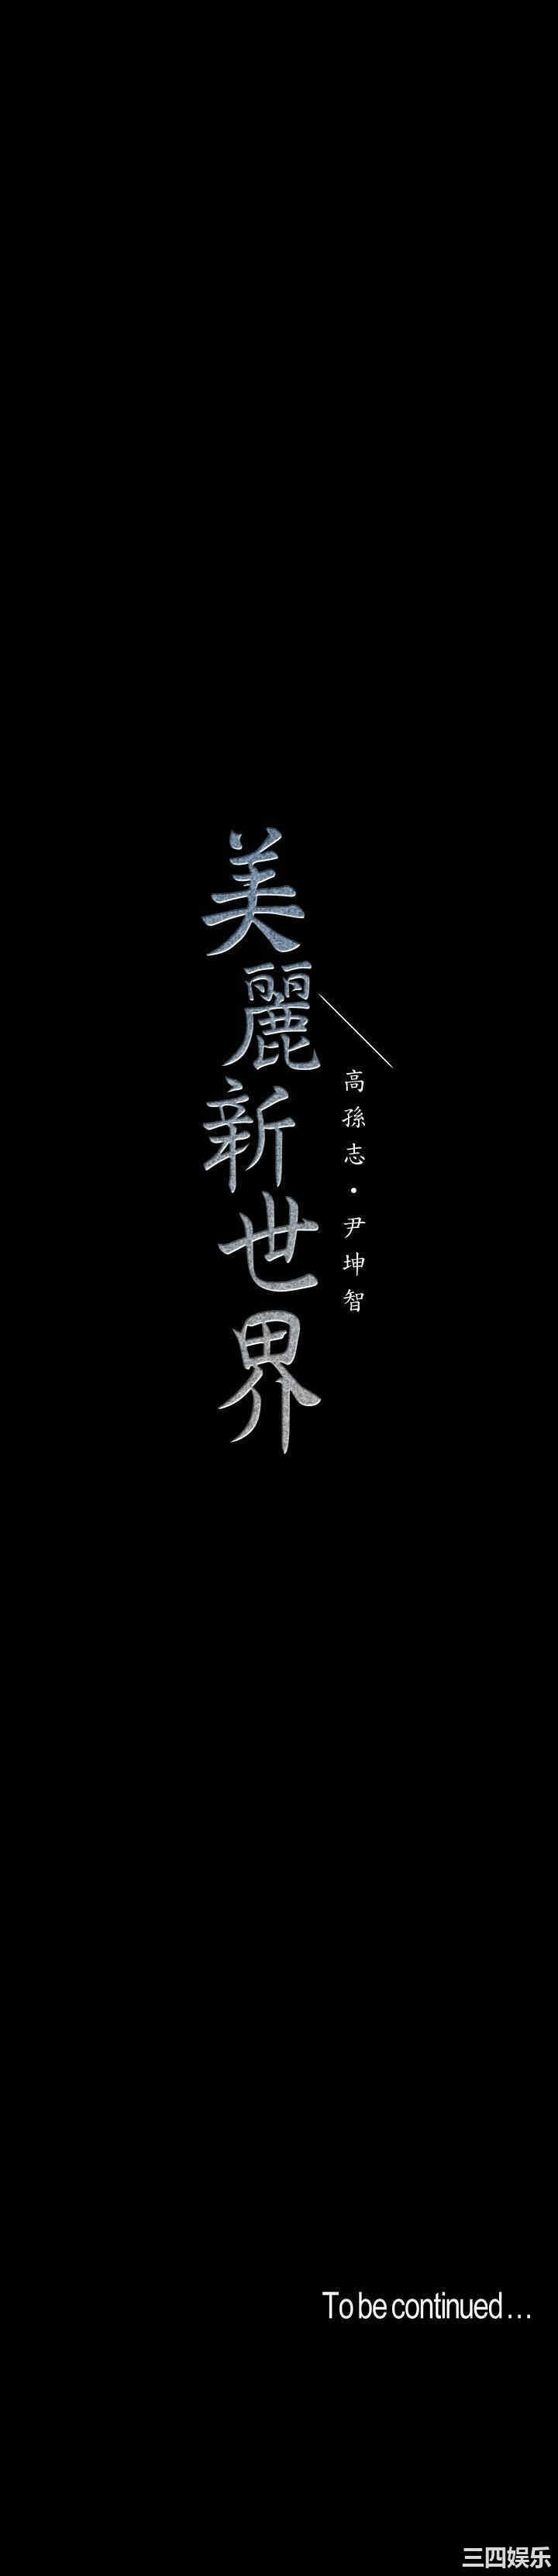 美麗新世界
高孫志・尹坤智
To be continued...
三四娱乐